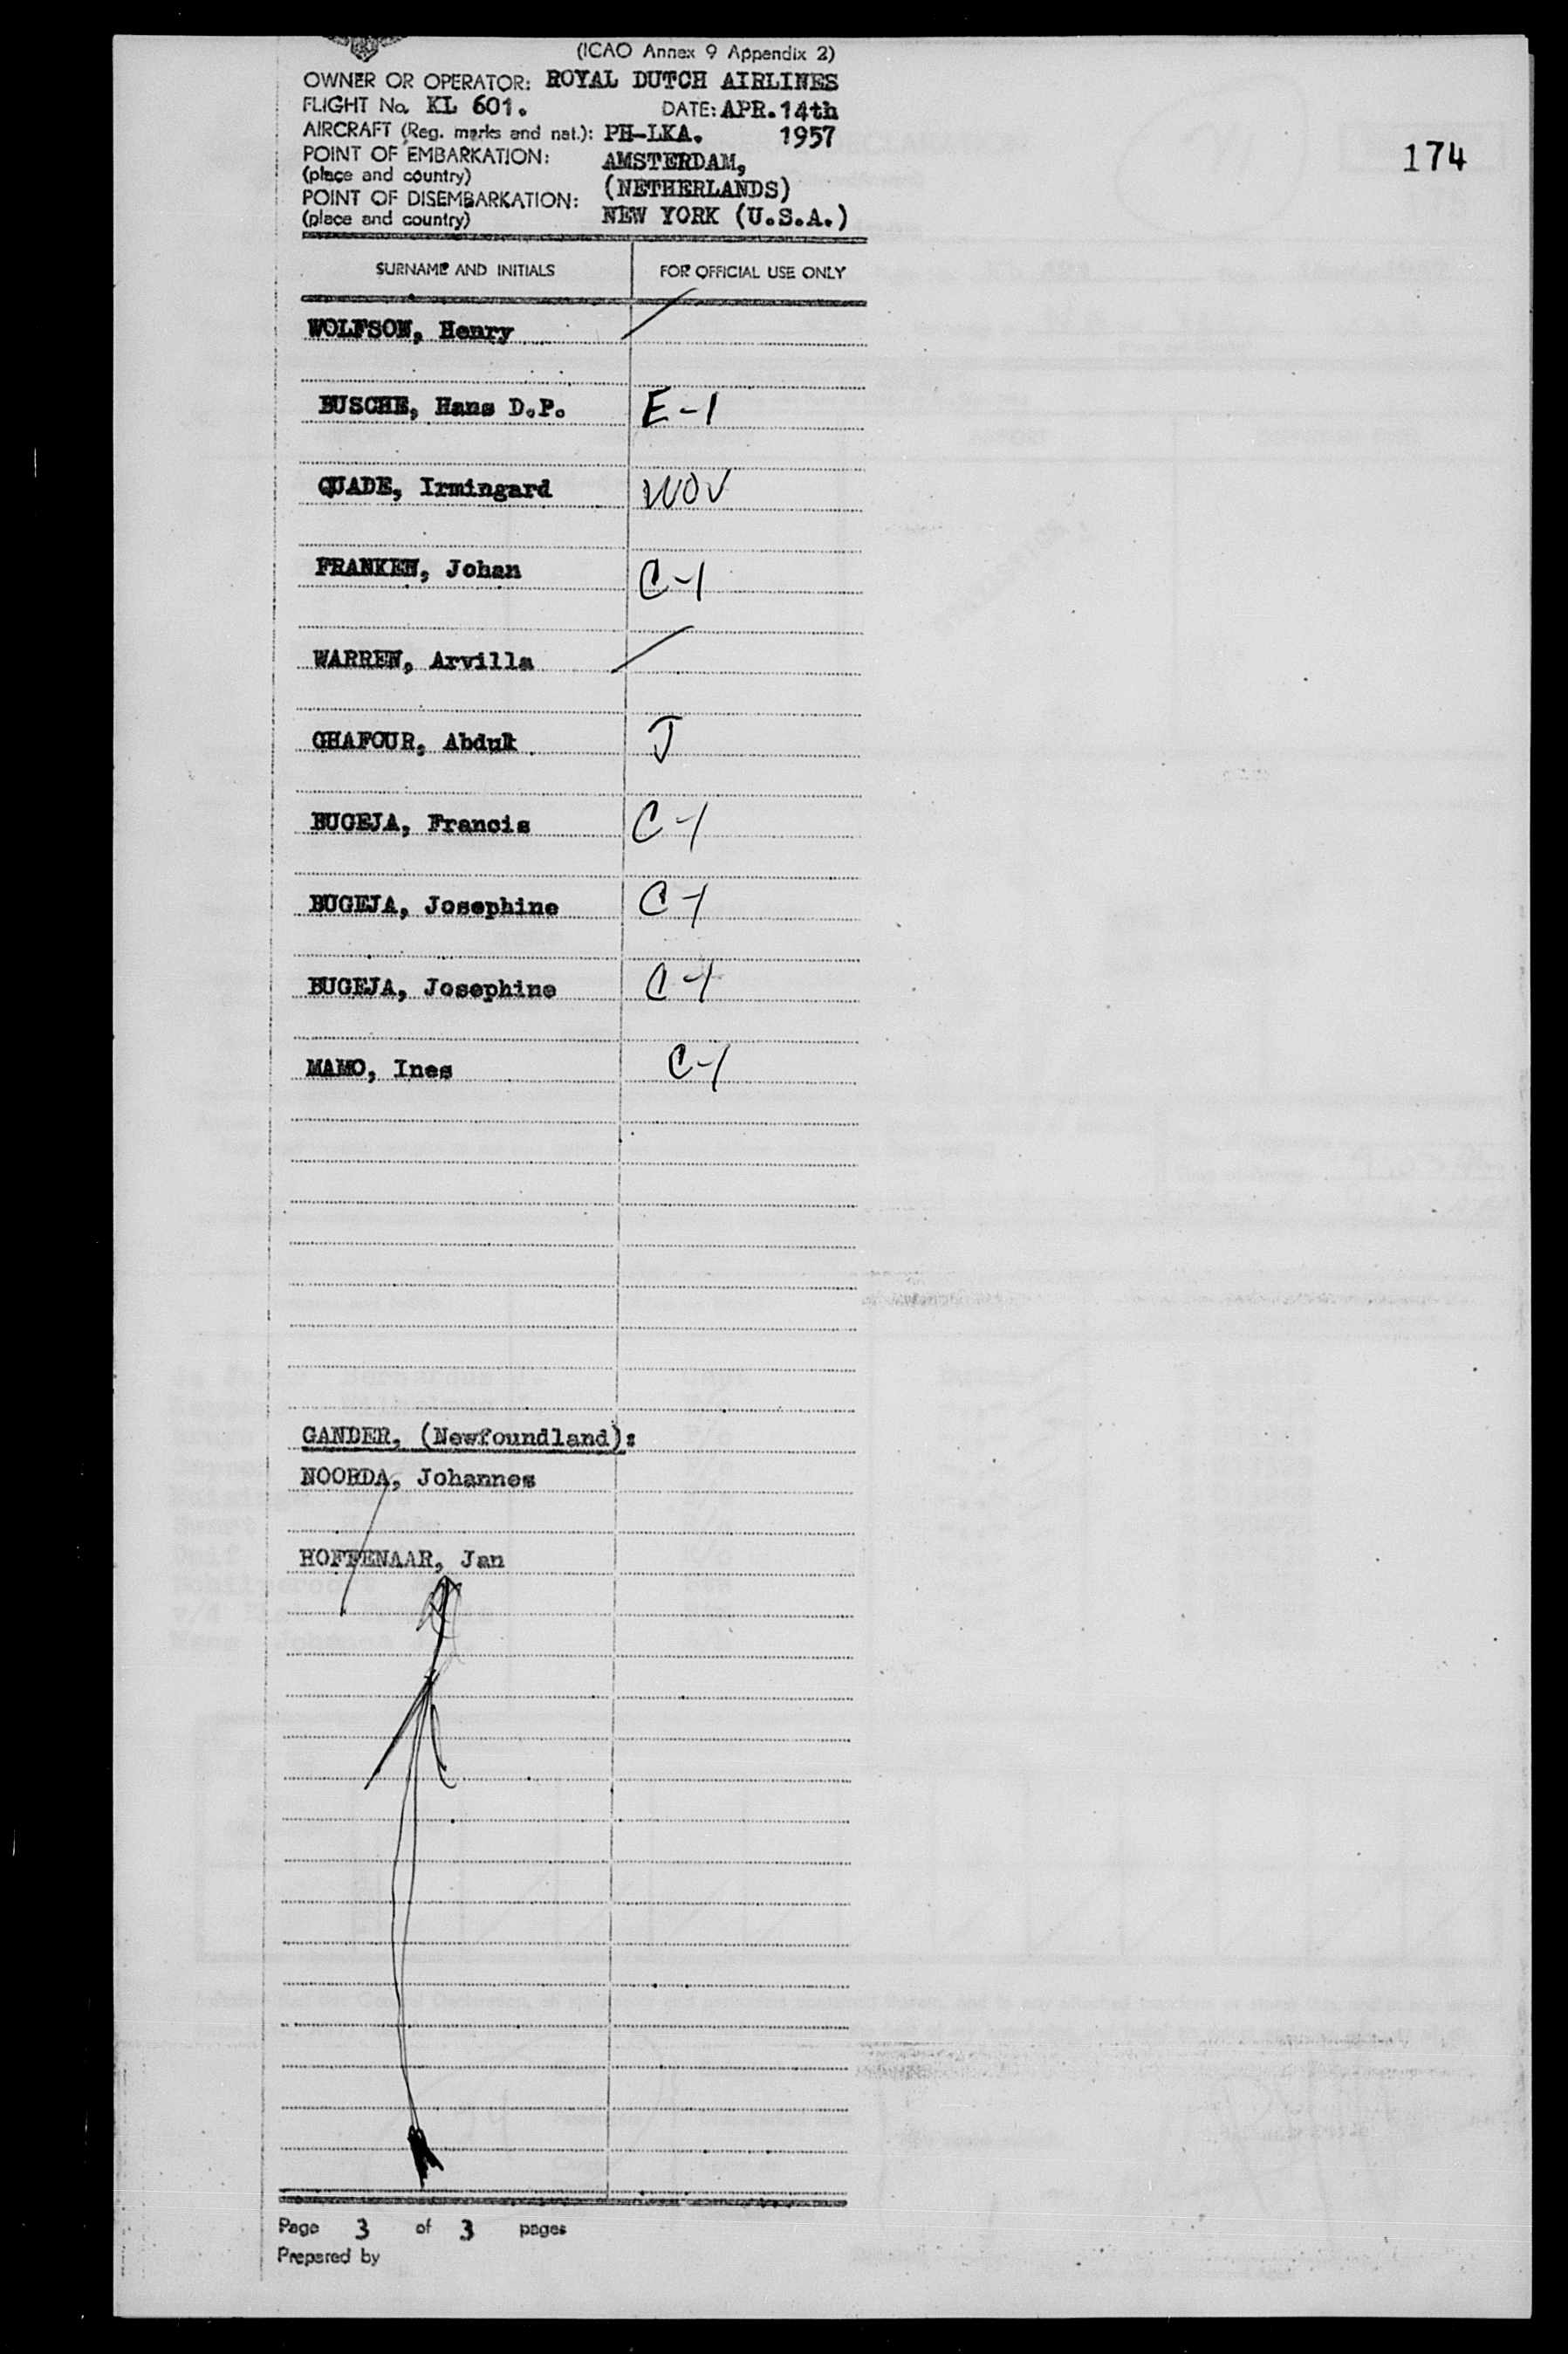 (ICAO Annex 9 Appendix 2)
OWNER OR OPERATOR: ROYAL DUTCH AIRLINES
FLIGHT No. KL 601. DATE: APR. 14th
AIRCRAFT (Reg. marks and nat.): PH-LKA. 1957
174
POINT OF EMBARKATION: AMSTERDAM,
(place and country) (NETHERLANDS)
POINT OF DISEMBARKATION:
(place and country) NEW YORK (U.S.A.)
SURNAME AND INITIALS FOR OFFICIAL USE ONLY
WOLFSON, Henry
BUSCHE, Hans D.P. E-1
QUADE, Irmingard WOV
FRANKEN, Johan C-1
WARREN, Arvilla
GHAFOUR, Abduk J
BUGEJA, Francis C-1
BUGEJA, Josephine C-1
BUGEJA, Josephine C-1
MAMO, Ines C-1
GANDER, (Newfoundland):
NOORDA, Johannes
HOFFENAAR, Jan
Page 3 of 3 pages
Prepared by